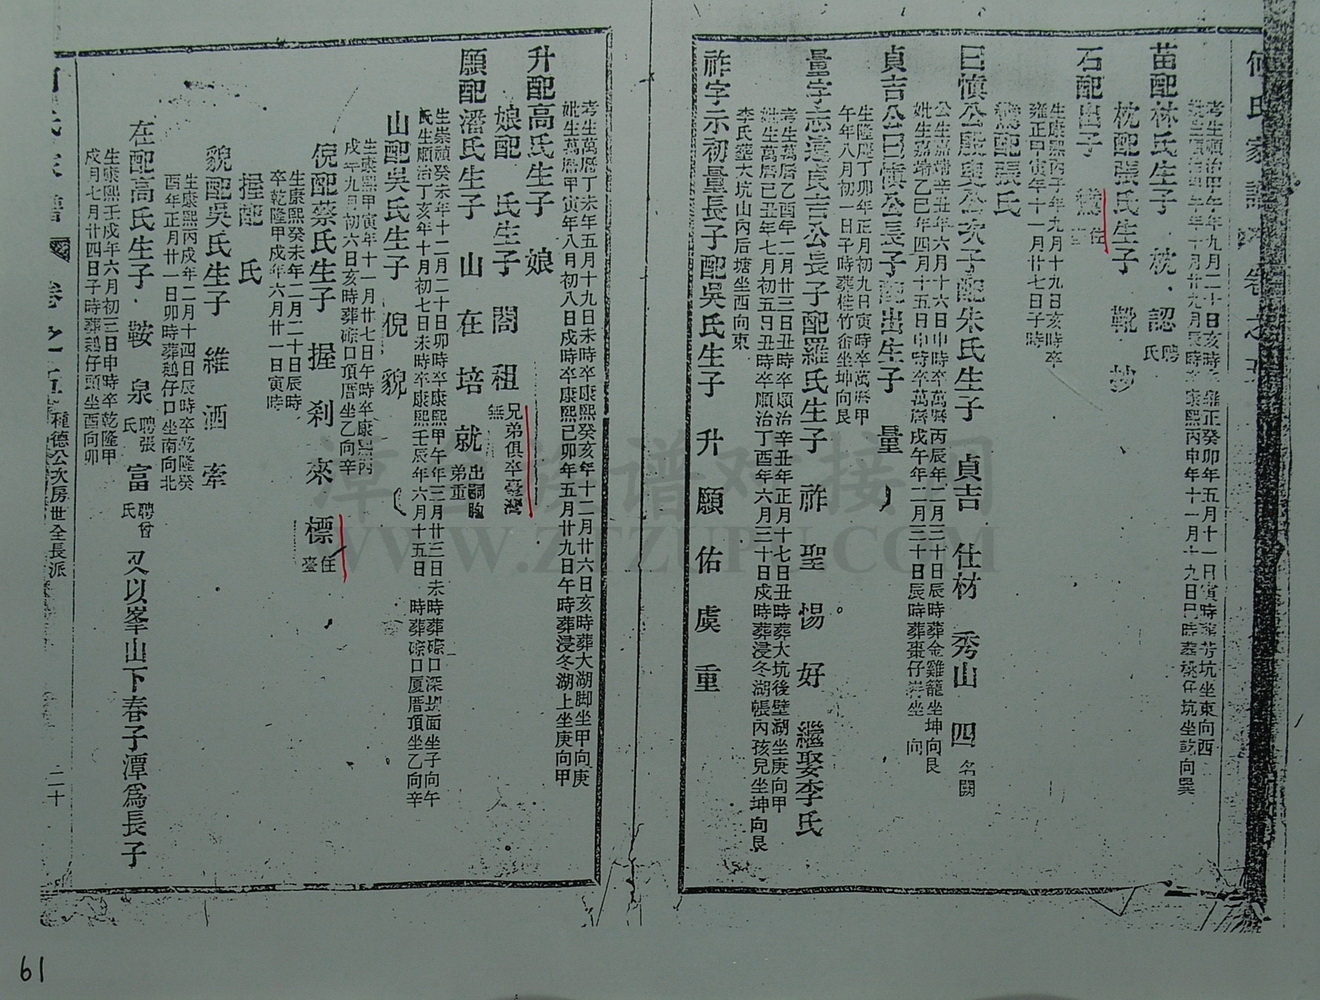 何氏家譜 卷之五
考生順治甲午年九月二十日亥時卒雍正癸卯年五月十一日寅時葬芳坑坐東向西
苗配林氏生子 枕 認 聘 氏
枕配張氏生子 靴 抄
石配 氏生子 在
生康熙丙子年九月十九日亥時卒
雍正甲寅年十一月廿七日子時
配張氏
曰慎公 公次子配朱氏生子 貞吉 仕材 秀山 四 名闕
公生嘉靖辛丑年六月十六日申時卒萬曆丙辰年二月三十日辰時葬金雞籠坐坤向艮
妣生嘉靖乙巳年四月十五日申時卒萬曆戊午年二月三十日辰時葬棗仔 坐 向
貞吉公曰慎公長子配出生子 量
生隆慶丁卯年正月初九日寅時卒萬曆甲
午年八月初一日子時葬桂竹 坐坤向艮
量字志遠貞吉公長子配羅氏生子 祚 聖 惕 好 繼娶李氏
考生萬曆乙酉年二月廿三日丑時卒順治辛丑年正月十七日丑時葬大坑後壁湖坐庚向甲
妣生萬曆己丑年七月初五日丑時卒順治丁酉年六月三十日戌時葬浸冬湖帳內孩兒坐坤向艮
李氏葬大坑山內后塘坐西向東
祚字示初量長子配吳氏生子 升 願 佑 虞 重
考生萬曆丁未年五月十九日未時卒康熙癸亥年十二月廿六日亥時葬大湖脚坐甲向庚
妣生萬曆甲寅年八月初八日戌時卒康熙己卯年五月廿九日午時葬浸冬湖上坐庚向甲
升配高氏生子 娘
娘配 氏生子 閤 祖 兄弟俱卒臺灣 無
願配潘氏生子 山 在 培 就 出嗣 弟重
生崇禎癸未年十二月二十日卯時卒康熙甲午年三月廿三日未時葬磜口深坑面坐子向午
氏生順治丁亥年十月初七日未時卒康熙壬辰年六月十五日 時葬磜口厦厝頂坐乙向辛
山配吳氏生子 倪 貌
生康熙甲寅年十一月廿七日午時卒康熙丙
戌年九月初六日亥時葬磜口頂厝坐乙向辛
倪配蔡氏生子 握 刹 來 標 在臺
生康熙癸未年二月二十日辰時
卒乾隆甲戌年六月廿一日寅時
握配 氏
貌配吳氏生子 維 洒 牽
生康熙丙戌年二月十四日辰時卒乾隆癸
酉年正月廿一日卯時葬鷄仔口坐南向北
在配高氏生子 鞍 泉 聘張氏 富 聘曾氏 又以峯山下春子潭為長子
生康熙壬戌年六月初三日申時卒乾隆甲
戌月七月廿四日子時葬鷄仔頭坐酉向卯
卷之五 種德公次房世全長派 二十
漳臺族譜對接網
WWW.ZTZUPU.COM
61